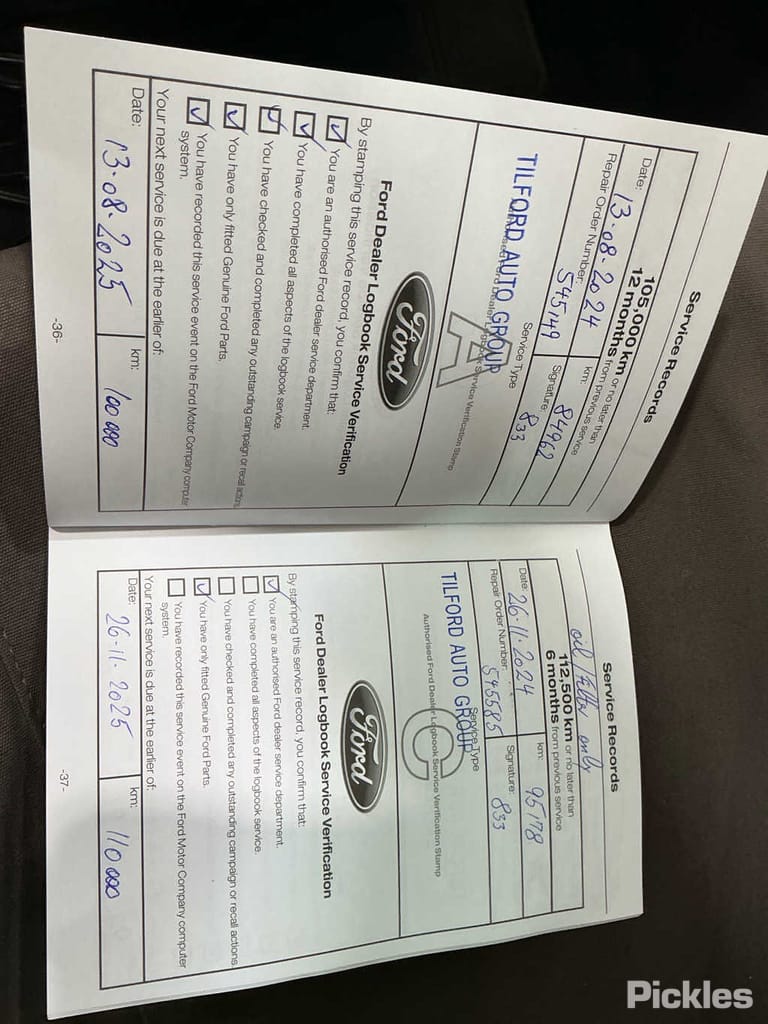 Service Records
105,000 km or no later than
12 months from previous service
Date: 13.08.2024
km: 84962
Repair Order Number: 545149
Signature: 833
Service Type
A
TILFORD AUTO GROUP
Ford
Ford Dealer Logbook Service Verification
By stamping this service record, you confirm that:
You are an authorised Ford dealer service department.
You have completed all aspects of the logbook service.
You have checked and completed any outstanding campaign or recall actions.
You have only fitted Genuine Ford Parts.
You have recorded this service event on the Ford Motor Company computer
system.
Your next service is due at the earlier of:
Date: 13.08.2025
km: 100 000
-36-
Service Records
oil / filter only
112,500 km or no later than
6 months from previous service
Date: 26-11-2024
km: 95178
Repair Order Number: 545585
Signature: 833
Service Type
C
TILFORD AUTO GROUP
Authorised Ford Dealer Logbook Service Verification Stamp
Ford
Ford Dealer Logbook Service Verification
By stamping this service record, you confirm that:
You are an authorised Ford dealer service department.
You have completed all aspects of the logbook service.
You have checked and completed any outstanding campaign or recall actions.
You have only fitted Genuine Ford Parts.
You have recorded this service event on the Ford Motor Company computer
system.
Your next service is due at the earlier of:
Date: 26-11-2025
km: 110 000
-37-
Pickles